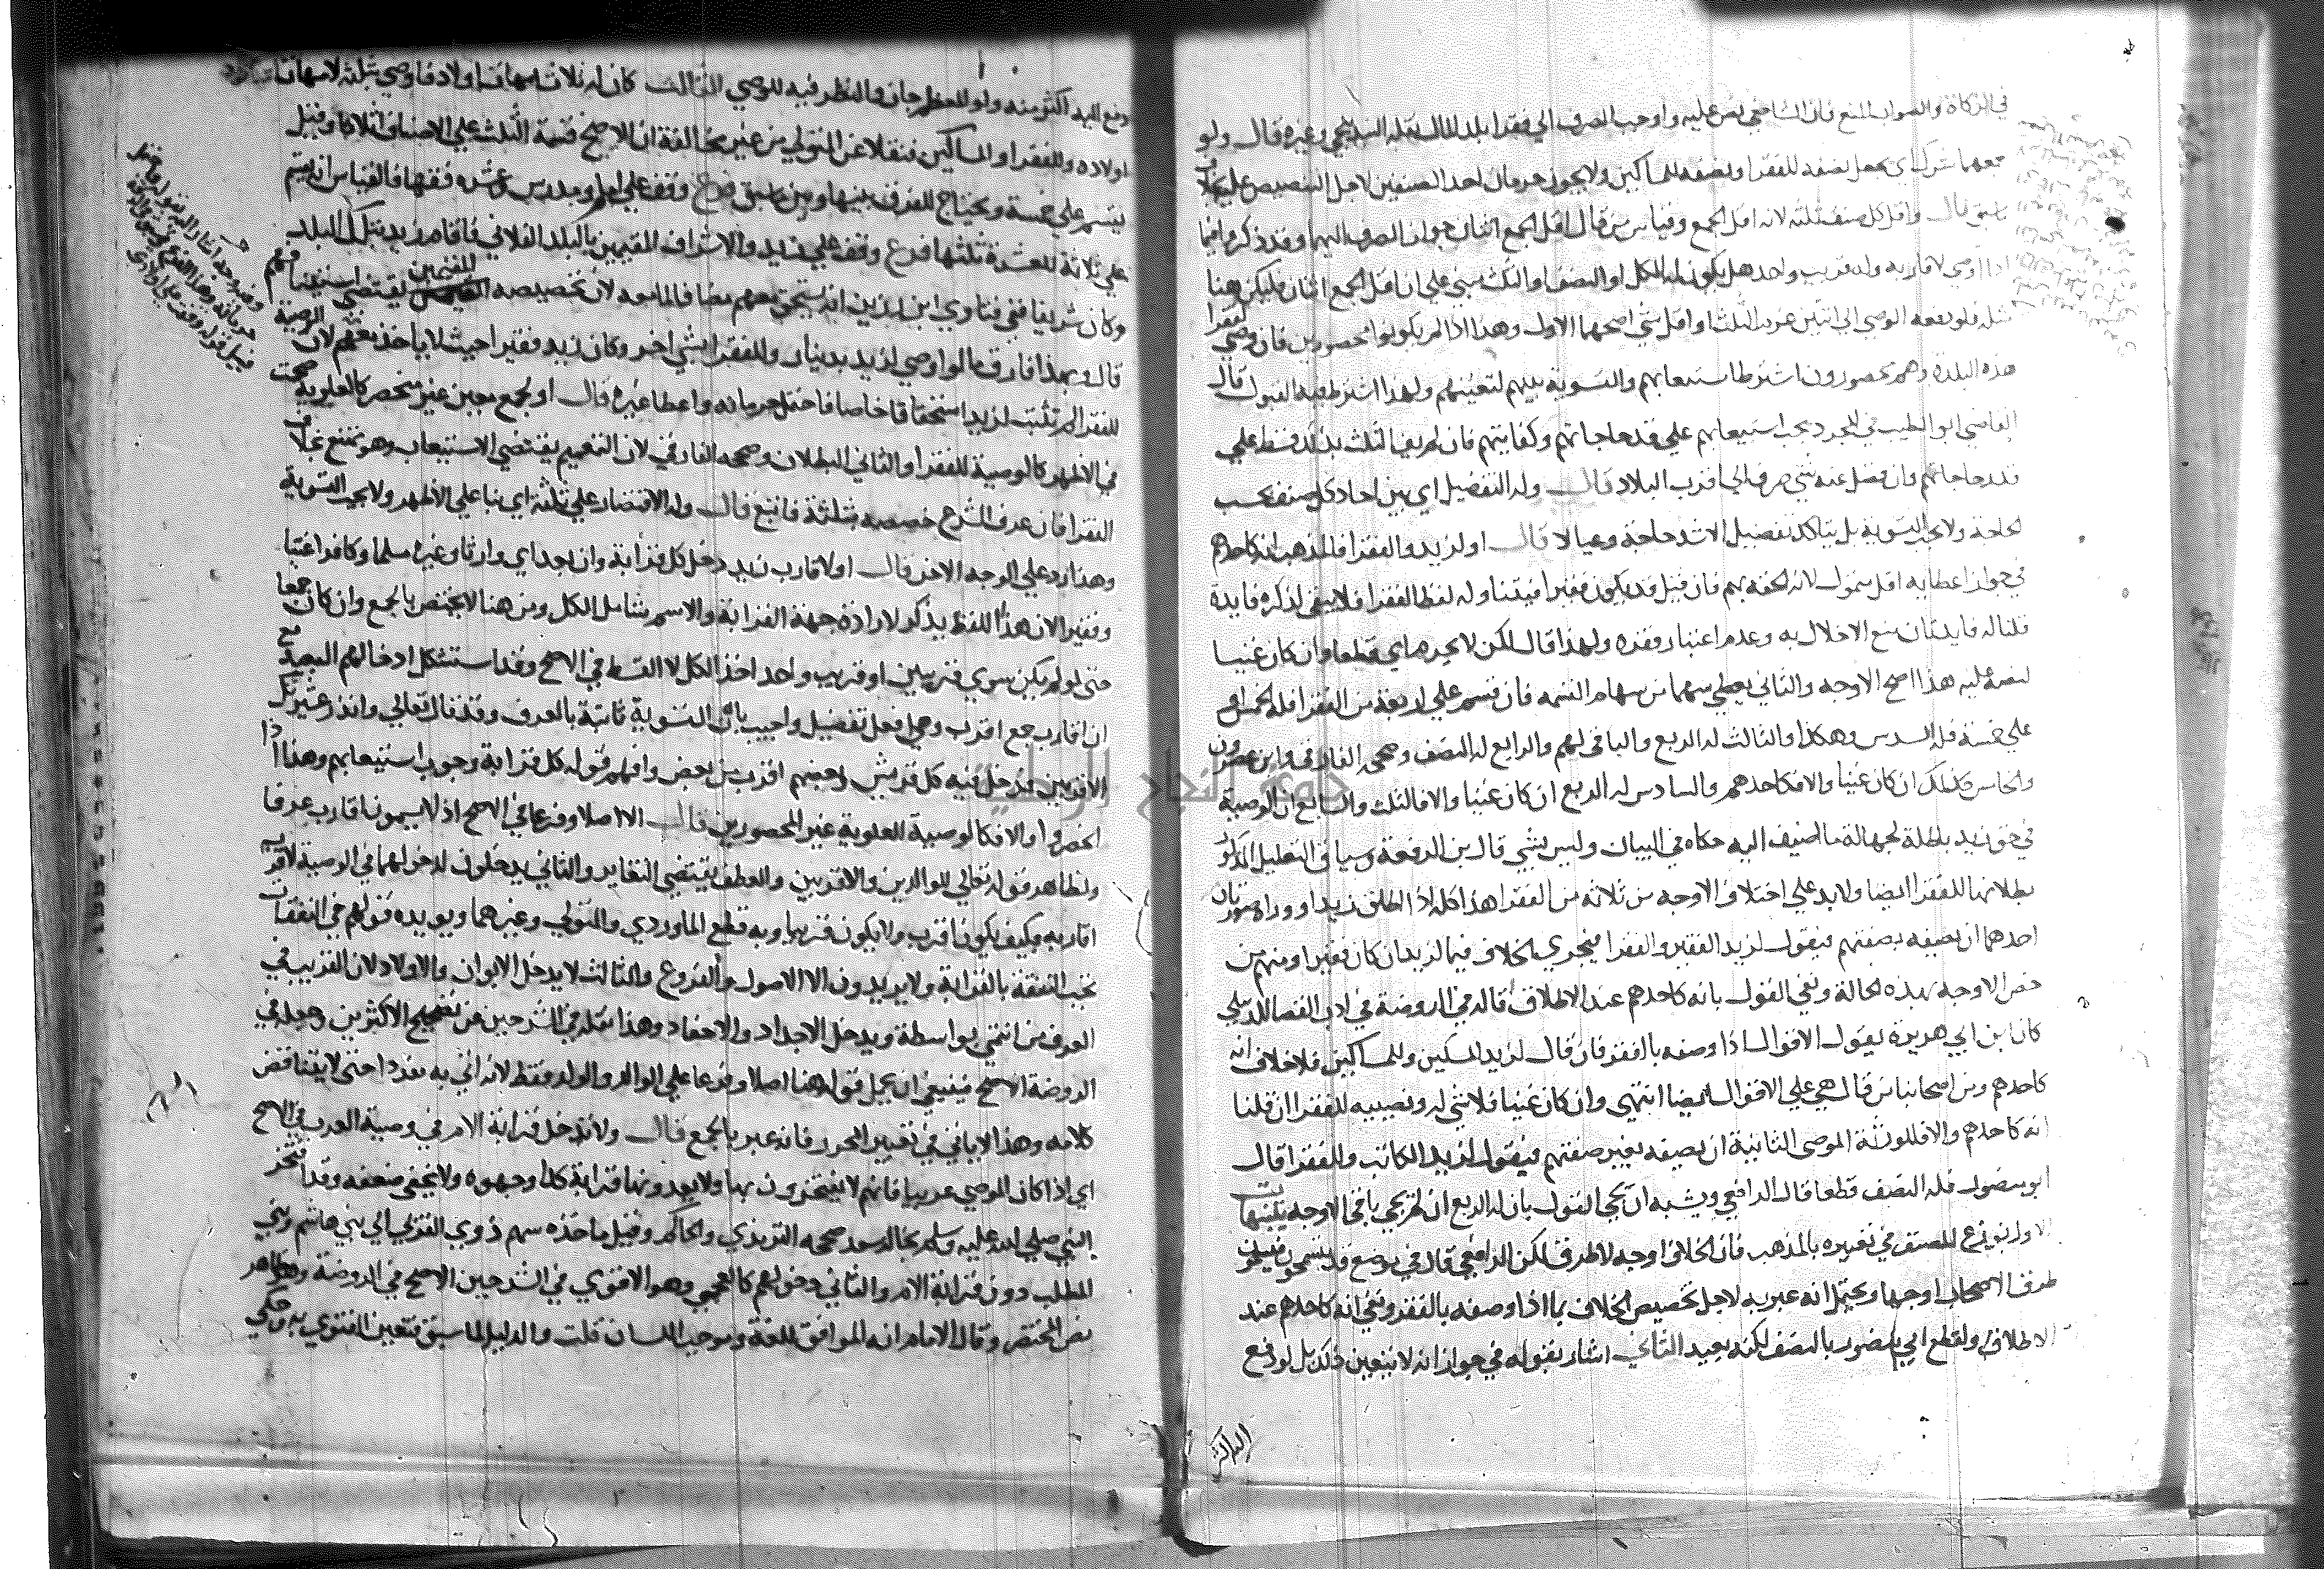 في الزكاة والصواب المنع فان الشافعي نص عليه واوجب الصرف الي فقرا بلد المال نقله البندنيجي وغيره قال ولو
جمعهما شرك اي يجعل نصفه للفقرا ونصفه للمساكين ولا يجوز حرمان احد الصنفين لاجل التنصيص عليه بخلاف
ما سبق قال واقل كل صنف ثلثة لانه اقل الجمع وقياس من قال اقل الجمع اثنان جواز الصرف اليهما وقد ذكروا فيما
اذا اوصي لاقاربه وله قريب واحد هل يكون له الكل او النصف او الثلث مبني علي ان اقل الجمع اثنان فليكن هنا
مثله فلو دفعه الوصي الي اثنين غرم الثلث او اقل شي اصحهما الاول وهذا اذا لم يكونوا محصورين فان وصي لفقرا
هذه البلدة وهم محصورون اشترط استيعابهم والتسوية بينهم لتعينهم ولهذا اشترط فيه القبول قال
القاضي ابو الطيب في المجرد يجب استيعابهم علي قدر حاجاتهم وكفايتهم فان لم يف الثلث بذلك قسط علي
قدر حاجاتهم وان فضل عنه شي صرف الي اقرب البلاد قال وله التفضيل اي بين احاد كل صنف بحسب
الحاجة ولا يجب التسوية بل يتاكد تفضيل الاشد حاجة وعيالا قال او لزيد والفقرا فالمذهب انه كاحدهم
في جواز اعطايه اقل متمول لانه الحقه بهم فان قيل قد يكون فقيرا فيتناوله لفظ الفقرا فلا يبقي لذكره فايدة
قلنا له فايدتان منع الاخلال به وعدم اعتبار فقره ولهذا قال لكن لا يحرم اي قطعا وان كان غنيا
لنصه عليه هذا اصح الاوجه والثاني يعطي سهما من سهام القسمة فان قسم علي اربعة من الفقرا فله الخمس او
علي خمسة فله السدس وهكذا والثالث له الربع والباقي لهم والرابع له النصف وصححه الفارقي وابن عصرون
والخامس كذلك ان كان غنيا والا فكاحدهم والسادس له الربع ان كان غنيا والا فالثلث والسابع ان الوصية
في حق زيد باطلة لجهالة ما اضيف اليه حكاه في البيان وليس بشي قال بن الرفعة وسياق التعليل المذكور
بطلانها للفقرا ايضا ولا بد علي اختلاف الاوجه من ثلاثة من الفقرا هذا كله اذا اطلق زيدا ووراه صورتان
احدهما ان يصفه بصفتهم فيقول لزيد الفقير والفقرا فيجري الخلاف فيما لزيد ان كان فقيرا ومنهم من
خص الاوجه بهذه الحالة ونفي القول بانه كاحدهم عند الاطلاق قاله في الروضة في ادب القضا للدبيلي
كان ابن ابي هريرة يقول الاقوال اذا وصفه بالفقر فان قال لزيد المسكين وللمساكين فلا خلاف انه
كاحدهم ومن اصحابنا من قال هي علي الاقوال ايضا انتهي وان كان غنيا فلا شي له ونصيبه للفقرا ان قلنا
انه كاحدهم والا فللورثة الموصي الثانية ان يصفه بغير صفتهم فيقول لزيد الكاتب والفقرا قال
ابو منصور فله النصف قطعا قال الرافعي ويشبه ان يجي القول بان له الربع ان لم يجي باقي الاوجه
الاول نوزع المصنف في تعبيره بالمذهب فان الخلاف اوجه لا طرق لكن الرافعي قال في موضع قد يتسمحون فيسمون
طرق الاصحاب اوجها ويحتمل انه عبر به لاجل تخصيص الخلاف بما اذا وصفه بالفقر ونفي انه كاحدهم عند
الاطلاق ولقطع ابي منصور بالنصف لكنه بعيد الثاني اشار بقوله في جواز انه لا يتعين ذلك بل لو دفع
دفع اليه اكثر منه ولو للعظم جاز والنظر فيه للوصي الثالث كان له ثلاث امهات اولاد فاوصي بثلثه لامهات
اولاده وللفقرا والمساكين فنقلا عن المتولي من غير مخالفة ان الاصح قسمة الثلث علي الاصناف اثلاثا وقيل
يقسم علي خمسة ويحتاج للفرق بينها وبين ما سبق فرع وقف علي امام ومدرس وعشرة فقها فالقياس انه يقسم
علي ثلاثة للعشرة ثلثها فرع وقف علي زيد والاشراف المقيمين بالبلد الفلاني فاقام زيد بتلك البلد
وكان شريفا ففي فتاوي ابن رزين انه يستحق معهم مضافا لما معه لان تخصيصه يقتضي استثنا
قال وبهذا فارق ما لو اوصي لزيد بدينار وللفقرا بشي اخر وكان زيد فقيرا حيث لا ياخذ معهم لان الوصية
للفقرا لم تثبت لزيد استحقاقا خاصا فاحتمل حرمانه واعطا غيره قال او لجمع معين غير منحصر كالعلوية صحت
في الاظهر كالوصية للفقرا والثاني البطلان وصححه الفارقي لان التعميم يقتضي الاستيعاب وهو ممتنع بخلاف
الفقرا فان عرف الشرع خصصه بثلثة فاتبع قال وله الاقتصار علي ثلثة اي بنا علي الاظهر ولا يجب التسوية
وهذا رد علي الوجه الاخر قال او لاقارب زيد دخل كل قرابة وان بعد اي وارثا وغيره مسلما وكافرا غنيا
وفقيرا لان هذا اللفظ يذكر لارادة جهة القرابة والاسم شامل الكل ومن هنا لا يختص بالجمع وان كان جمعا
حتي لو لم يكن سوي قريبين او قريب واحد اخذ الكل لا القسط في الاصح وقد استشكل ادخالهم البعيد مع
ان اقارب جمع اقرب وهي افعل تفضيل واجيب بان التسوية ثابتة بالعرف وقد قال تعالي وانذر عشيرتك
الاقربين فدخل فيه كل قريش وبعضهم اقرب من بعض وافهم قوله كل قرابة وجوب استيعابهم وهذا اذا
انحصروا والا فكالوصية للعلوية غير المحصورين قال الا اصلا وفرعا في الاصح اذ لا يسمون اقارب عرفا
ولظاهر قوله تعالي للوالدين والاقربين والعطف يقتضي التغاير والثاني يدخلون لدخولهما في الوصية لاقرب
اقاربه فكيف يكون اقرب ولا يكون قريبا وبه قطع الماوردي والمتولي وغيرهما ويويده قولهم في النفقات
تجب النفقة بالقرابة ولا يريدون الا الاصول والفروع والثالث لا يدخل الابوان والاولاد لان القريب في
العرف من انتمي بواسطة ويدخل الاجداد والاحفاد وهذا نقله في الشرحين عن تصحيح الاكثرين وجعله في
الروضة الاصح فينبغي ان يحمل قوله هنا اصلا وفرعا علي الوالد والولد فقط لانه اتي به مفردا حتي لا يتناقض
كلامه وهذا لا ياتي في تعبير المحرر فانه عبر بالجمع قال ولا تدخل قرابة الام في وصية العرب في الاصح
اي اذا كان الموصي عربيا فانهم لا يفتخرون بها ولا يعدونها قرابة كذا وجهوه ولا يخفي ضعفه وقد افتخر
النبي صلي الله عليه وسلم بخاله سعد صححه الترمذي والحاكم وقيل ماخذه سهم ذوي القربي الي بني هاشم وبني
المطلب دون قرابة الام والثاني دخولهم كالعجمي وهو الاقوي في الشرحين الاصح في الروضة وهو ظاهر
نص المختصر وقال الامام انه الموافق للغة وموجب اللسان قلت والدليل لما سبق فتعين الفتوي به وحكي